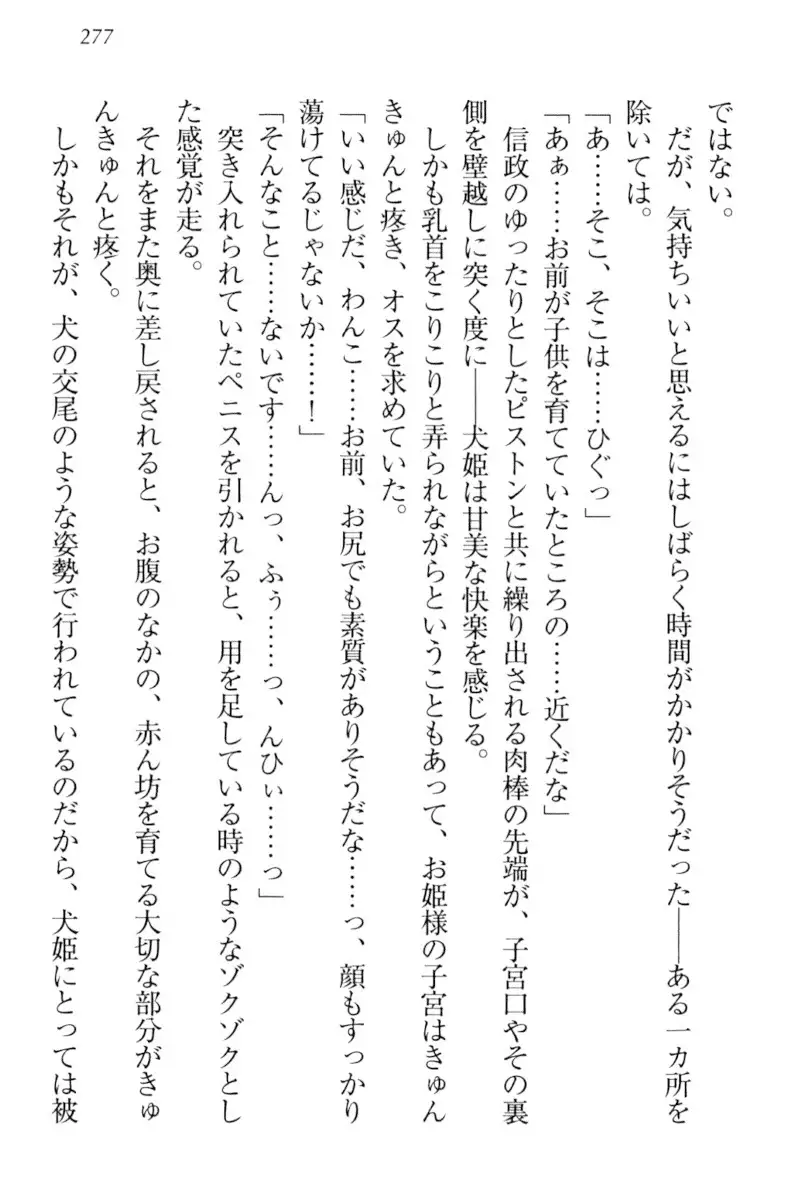 277
ではない。
だが、気持ちいいと思えるにはしばらく時間がかかりそうだった――ある一カ所を
除いては。
「あ……そこ、そこは……ひぐっ」
「あぁ……お前が子供を育てていたところの……近くだな」
信政のゆったりとしたピストンと共に繰り出される肉棒の先端が、子宮口やその裏
側を壁越しに突く度に――犬姫は甘美な快楽を感じる。
しかも乳首をこりこりと弄られながらということもあって、お姫様の子宮はきゅん
きゅんと疼き、オスを求めていた。
「いい感じだ、わんこ……お前、お尻でも素質がありそうだな……っ、顔もすっかり
蕩けてるじゃないか……！」
「そんなこと……ないです……んっ、ふぅ……っ、んひぃ……っ」
突き入れられていたペニスを引かれると、用を足している時のようなゾクゾクとし
た感覚が走る。
それをまた奥に差し戻されると、お腹のなかの、赤ん坊を育てる大切な部分がきゅ
んきゅんと疼く。
しかもそれが、犬の交尾のような姿勢で行われているのだから、犬姫にとっては被